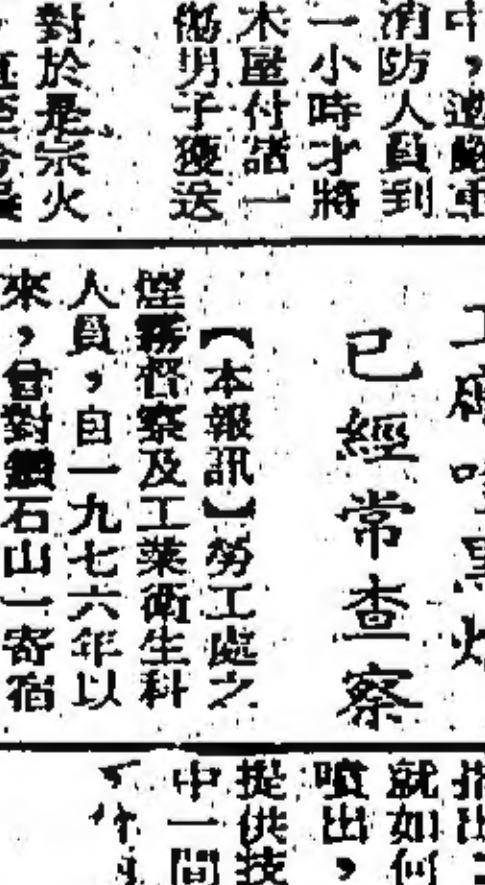 消防人員到
一小時才將
木屋付諸一
傷男子獲送
對於是宗火
已經常查察
【本報訊】勞工處之
煙霧督察及工業衞生科
人員，自一九七六年以
來，曾對鑽石山一寄宿
就如何
噴出，
提供技
中一間